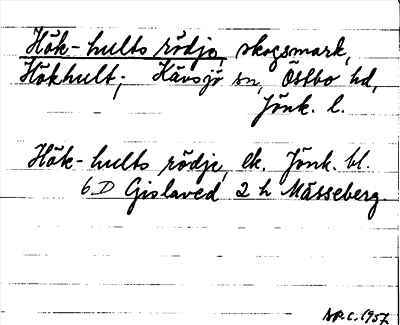 Hök-hults rödje, skogsmark,
Hökhult; Kävsjö sn, Östbo hd,
Jönk. l.
Hök-hults rödje, ek. Jönk. bl.
6D Gislaved 2 h Måsseberg.
1957